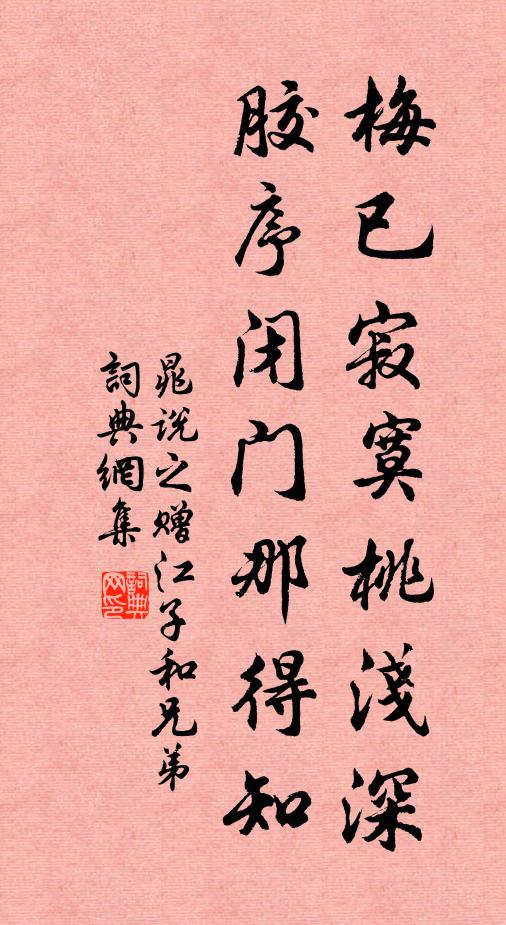 梅已寂寞桃淺深
胶序闭门那得知
晁说之赠江子和兄弟
詞典網集
詞典网印